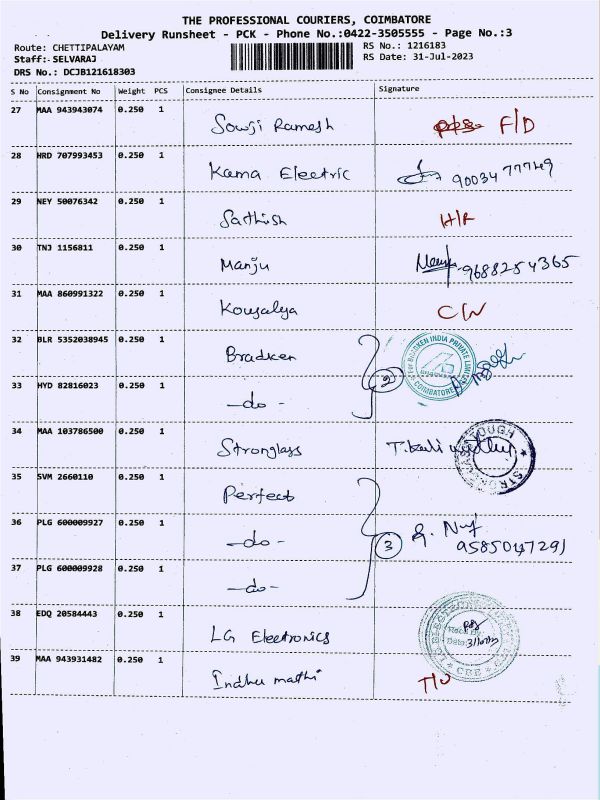 THE PROFESSIONAL COURIERS, COIMBATORE
Delivery Runsheet - PCK - Phone No.:0422-3505555 - Page No.:3
Route: CHETTIPALAYAM
Staff: SELVARAJ
DRS No.: DCJB121618303
RS No.: 1216183
RS Date: 31-Jul-2023
S No Consignment No Weight PCS Consignee Details Signature
27 MAA 943943074 0.250 1 Sowji Ramesh F/D
28 HRD 707993453 0.250 1 Kama Electric 90034 77749
29 NEY 50076342 0.250 1 Sathish H/R
30 TNJ 1156811 0.250 1 Manju 9688254365
31 MAA 860991322 0.250 1 Kousalya C/N
32 BLR 5352038945 0.250 1 Bradken
33 HYD 82816023 0.250 1 -do- 2
For BRADKEN INDIA PRIVATE LIMITED
COIMBATORE
34 MAA 103786500 0.250 1 Stronglass
35 SVM 2660110 0.250 1 Perfect
36 PLG 600009927 0.250 1 -do- 3 9585047291
37 PLG 600009928 0.250 1 -do-
38 EDQ 20584443 0.250 1 LG Electronics
39 MAA 943931482 0.250 1 Indhu mathi